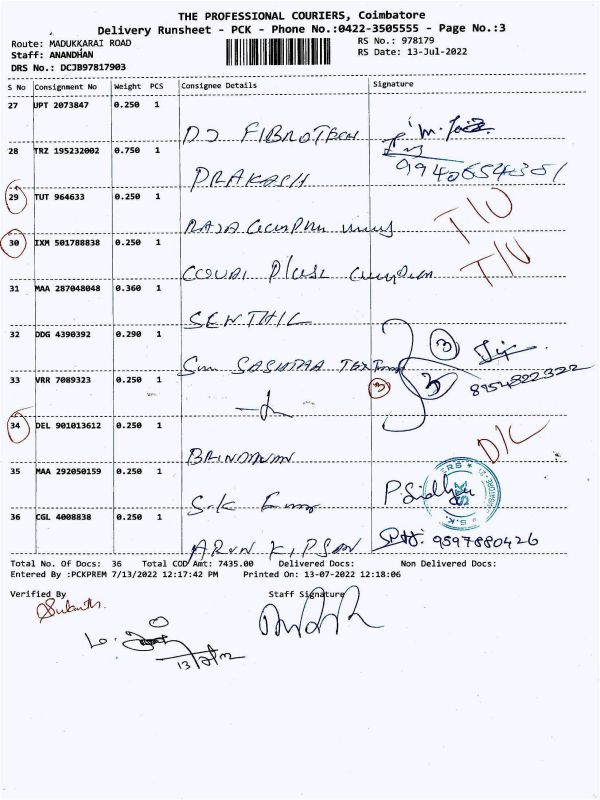 THE PROFESSIONAL COURIERS, Coimbatore
Delivery Runsheet - PCK - Phone No.:0422-3505555 - Page No.:3
Route: MADUKKARAI ROAD RS No.: 978179
Staff: ANANDHAN RS Date: 13-Jul-2022
DRS No.: DCJB97817903
S No Consignment No Weight PCS Consignee Details Signature
27 UPT 2073847 0.250 1
DJ FIBROTECH
28 TRZ 195232002 0.750 1
PRAKASH 9940654351
29 TUT 964633 0.250 1
RAJA T/U
30 IXM 501788838 0.250 1
T/U
31 MAA 287048048 0.360 1
SENTHIL
32 DDG 4390392 0.290 1
Sri SASHTAA 3
33 VRR 7089323 0.250 1 3 3 8954822322
34 DEL 901013612 0.250 1 D/C
35 MAA 292050159 0.250 1
S.K
36 CGL 4008838 0.250 1
ARUN 9597880426
Total No. Of Docs: 36 Total COD Amt: 7435.00 Delivered Docs: Non Delivered Docs:
Entered By :PCKPREM 7/13/2022 12:17:42 PM Printed On: 13-07-2022 12:18:06
Verified By Staff Signature